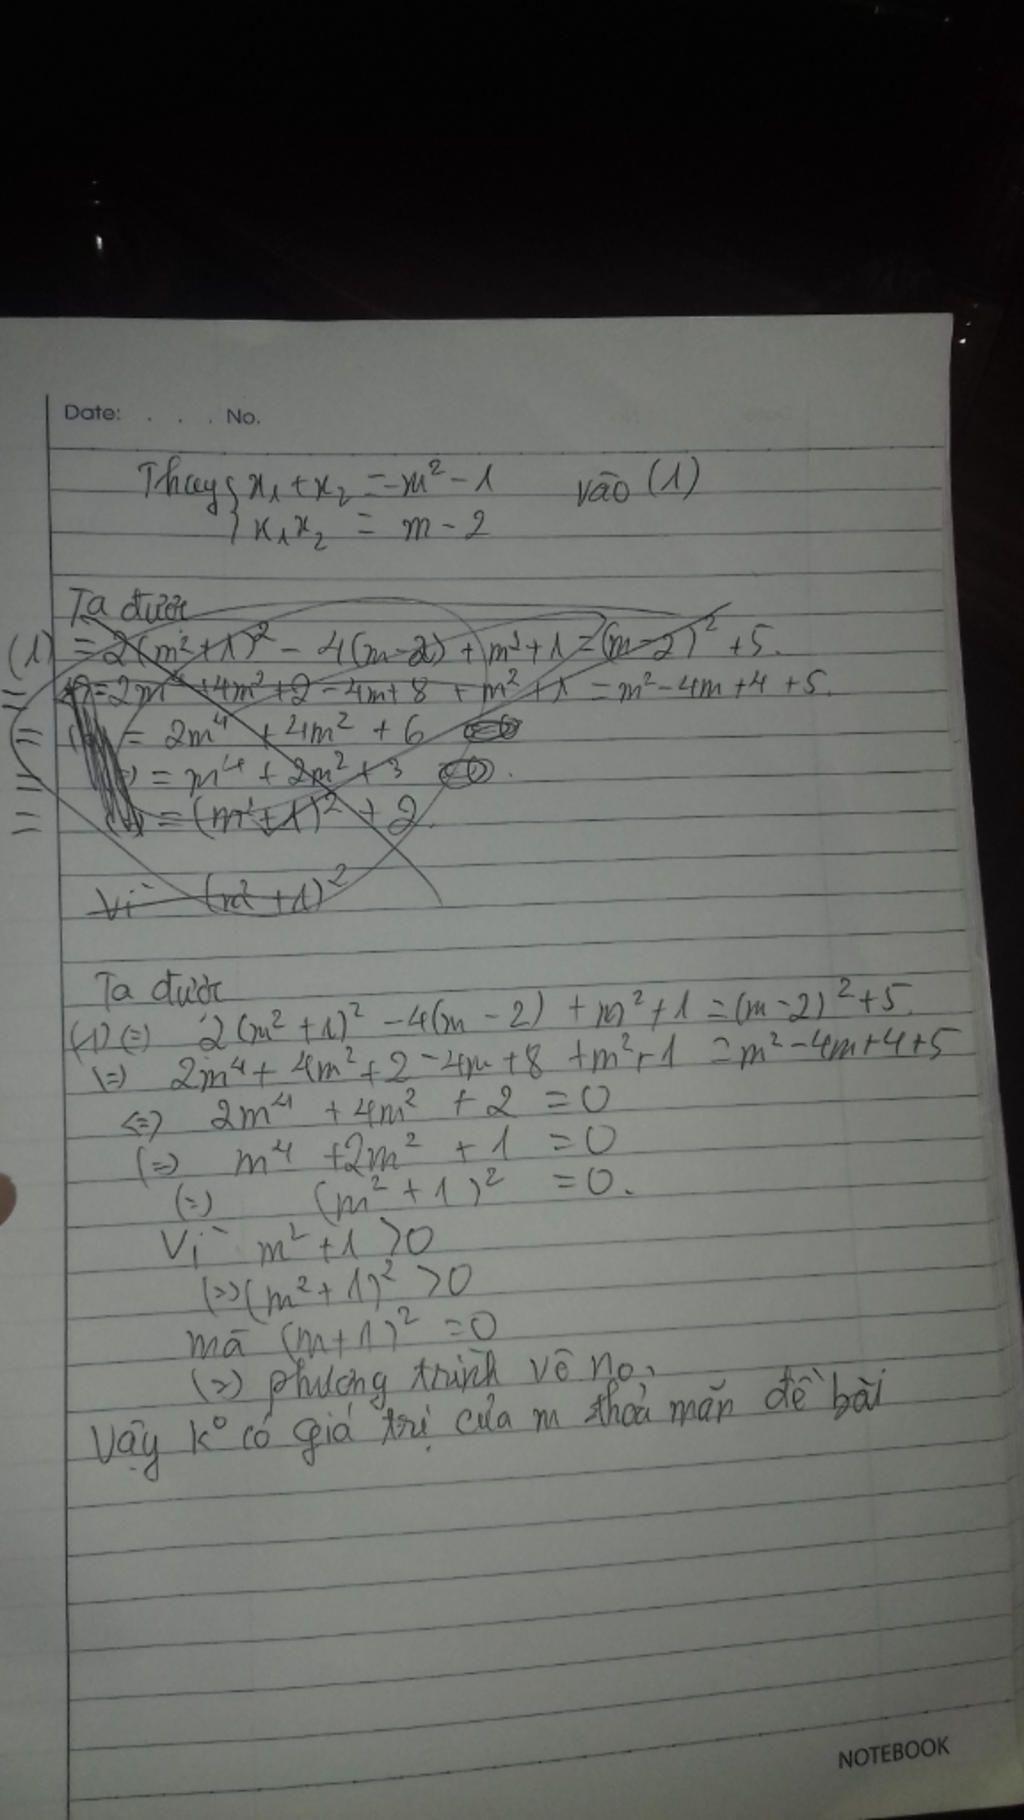 Date: . . . No.
Thay { x₁ + x₂ = -m² - 1 vào (1)
x₁x₂ = m - 2
Ta được
(1) = 2(m² + 1)² - 4(m - 2) + m² + 1 = (m - 2)² + 5.
= 2m⁴ + 4m² + 2 - 4m + 8 + m² + 1 = m² - 4m + 4 + 5.
= 2m⁴ + 4m² + 6
= m⁴ + 2m² + 3
= (m² + 1)² + 2
Vì (m² + 1)²
Ta được
(1) (=) 2(m² + 1)² - 4(m - 2) + m² + 1 = (m - 2)² + 5.
(=) 2m⁴ + 4m² + 2 - 4m + 8 + m² + 1 = m² - 4m + 4 + 5
<=> 2m⁴ + 4m² + 2 = 0
(=) m⁴ + 2m² + 1 = 0
(=) (m² + 1)² = 0.
Vì m² + 1 > 0
(=> (m² + 1)² > 0
mà (m + 1)² = 0
(=>) phương trình vô no.
Vậy k° có giá trị của m thoả mãn đề bài
NOTEBOOK